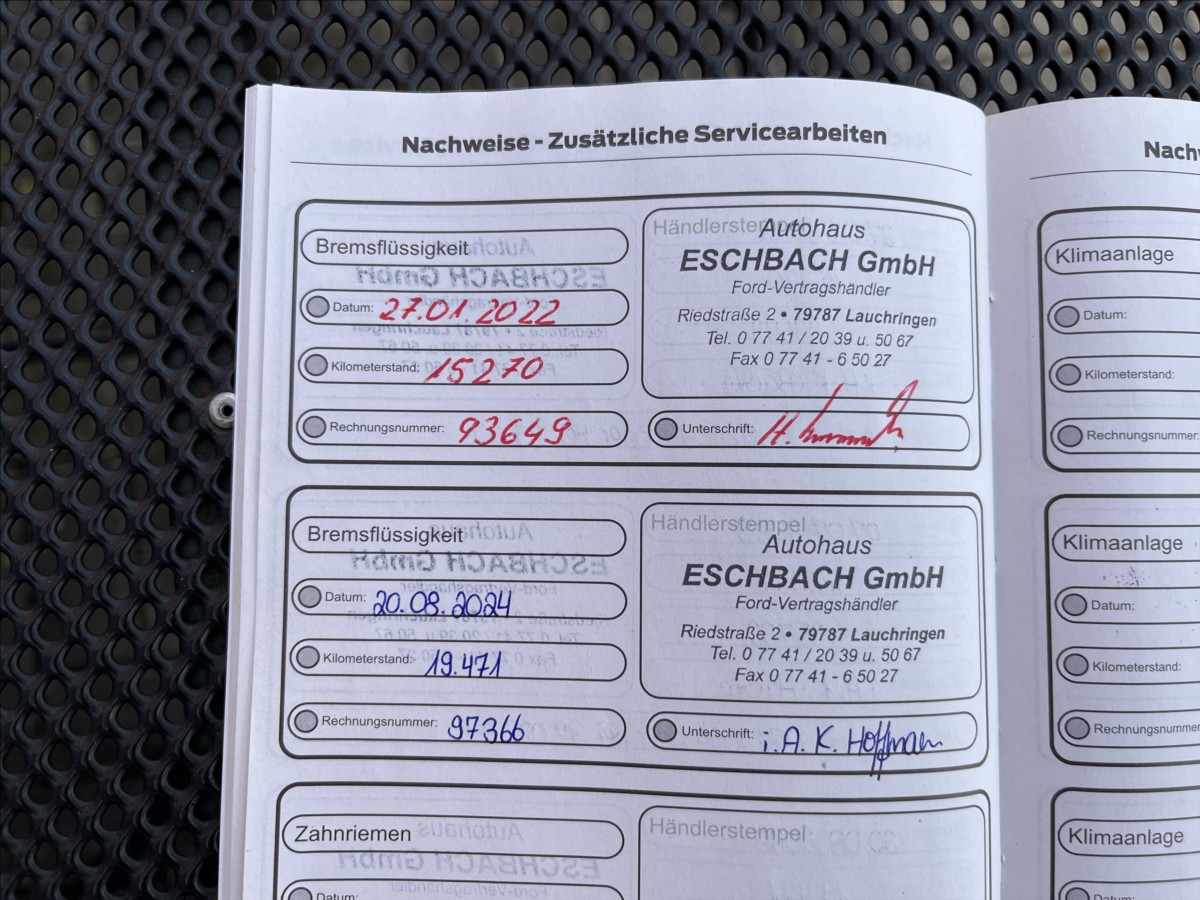 Nachweise - Zusätzliche Servicearbeiten
Bremsflüssigkeit
Datum: 27.01.2022
Kilometerstand: 15270
Rechnungsnummer: 93649
Händlerstempel
Autohaus
ESCHBACH GmbH
Ford-Vertragshändler
Riedstraße 2 • 79787 Lauchringen
Tel. 0 77 41 / 20 39 u. 50 67
Fax 0 77 41 - 6 50 27
Unterschrift: H.
Bremsflüssigkeit
Datum: 20.08.2024
Kilometerstand: 19.471
Rechnungsnummer: 97366
Händlerstempel
Autohaus
ESCHBACH GmbH
Ford-Vertragshändler
Riedstraße 2 • 79787 Lauchringen
Tel. 0 77 41 / 20 39 u. 50 67
Fax 0 77 41 - 6 50 27
Unterschrift: i.A. K. Hoffmann
Zahnriemen
Datum:
Händlerstempel
Nach
Klimaanlage
Datum:
Kilometerstand:
Rechnungsnummer:
Klimaanlage
Datum:
Kilometerstand:
Rechnungsnummer
Klimaanlage
Datum: